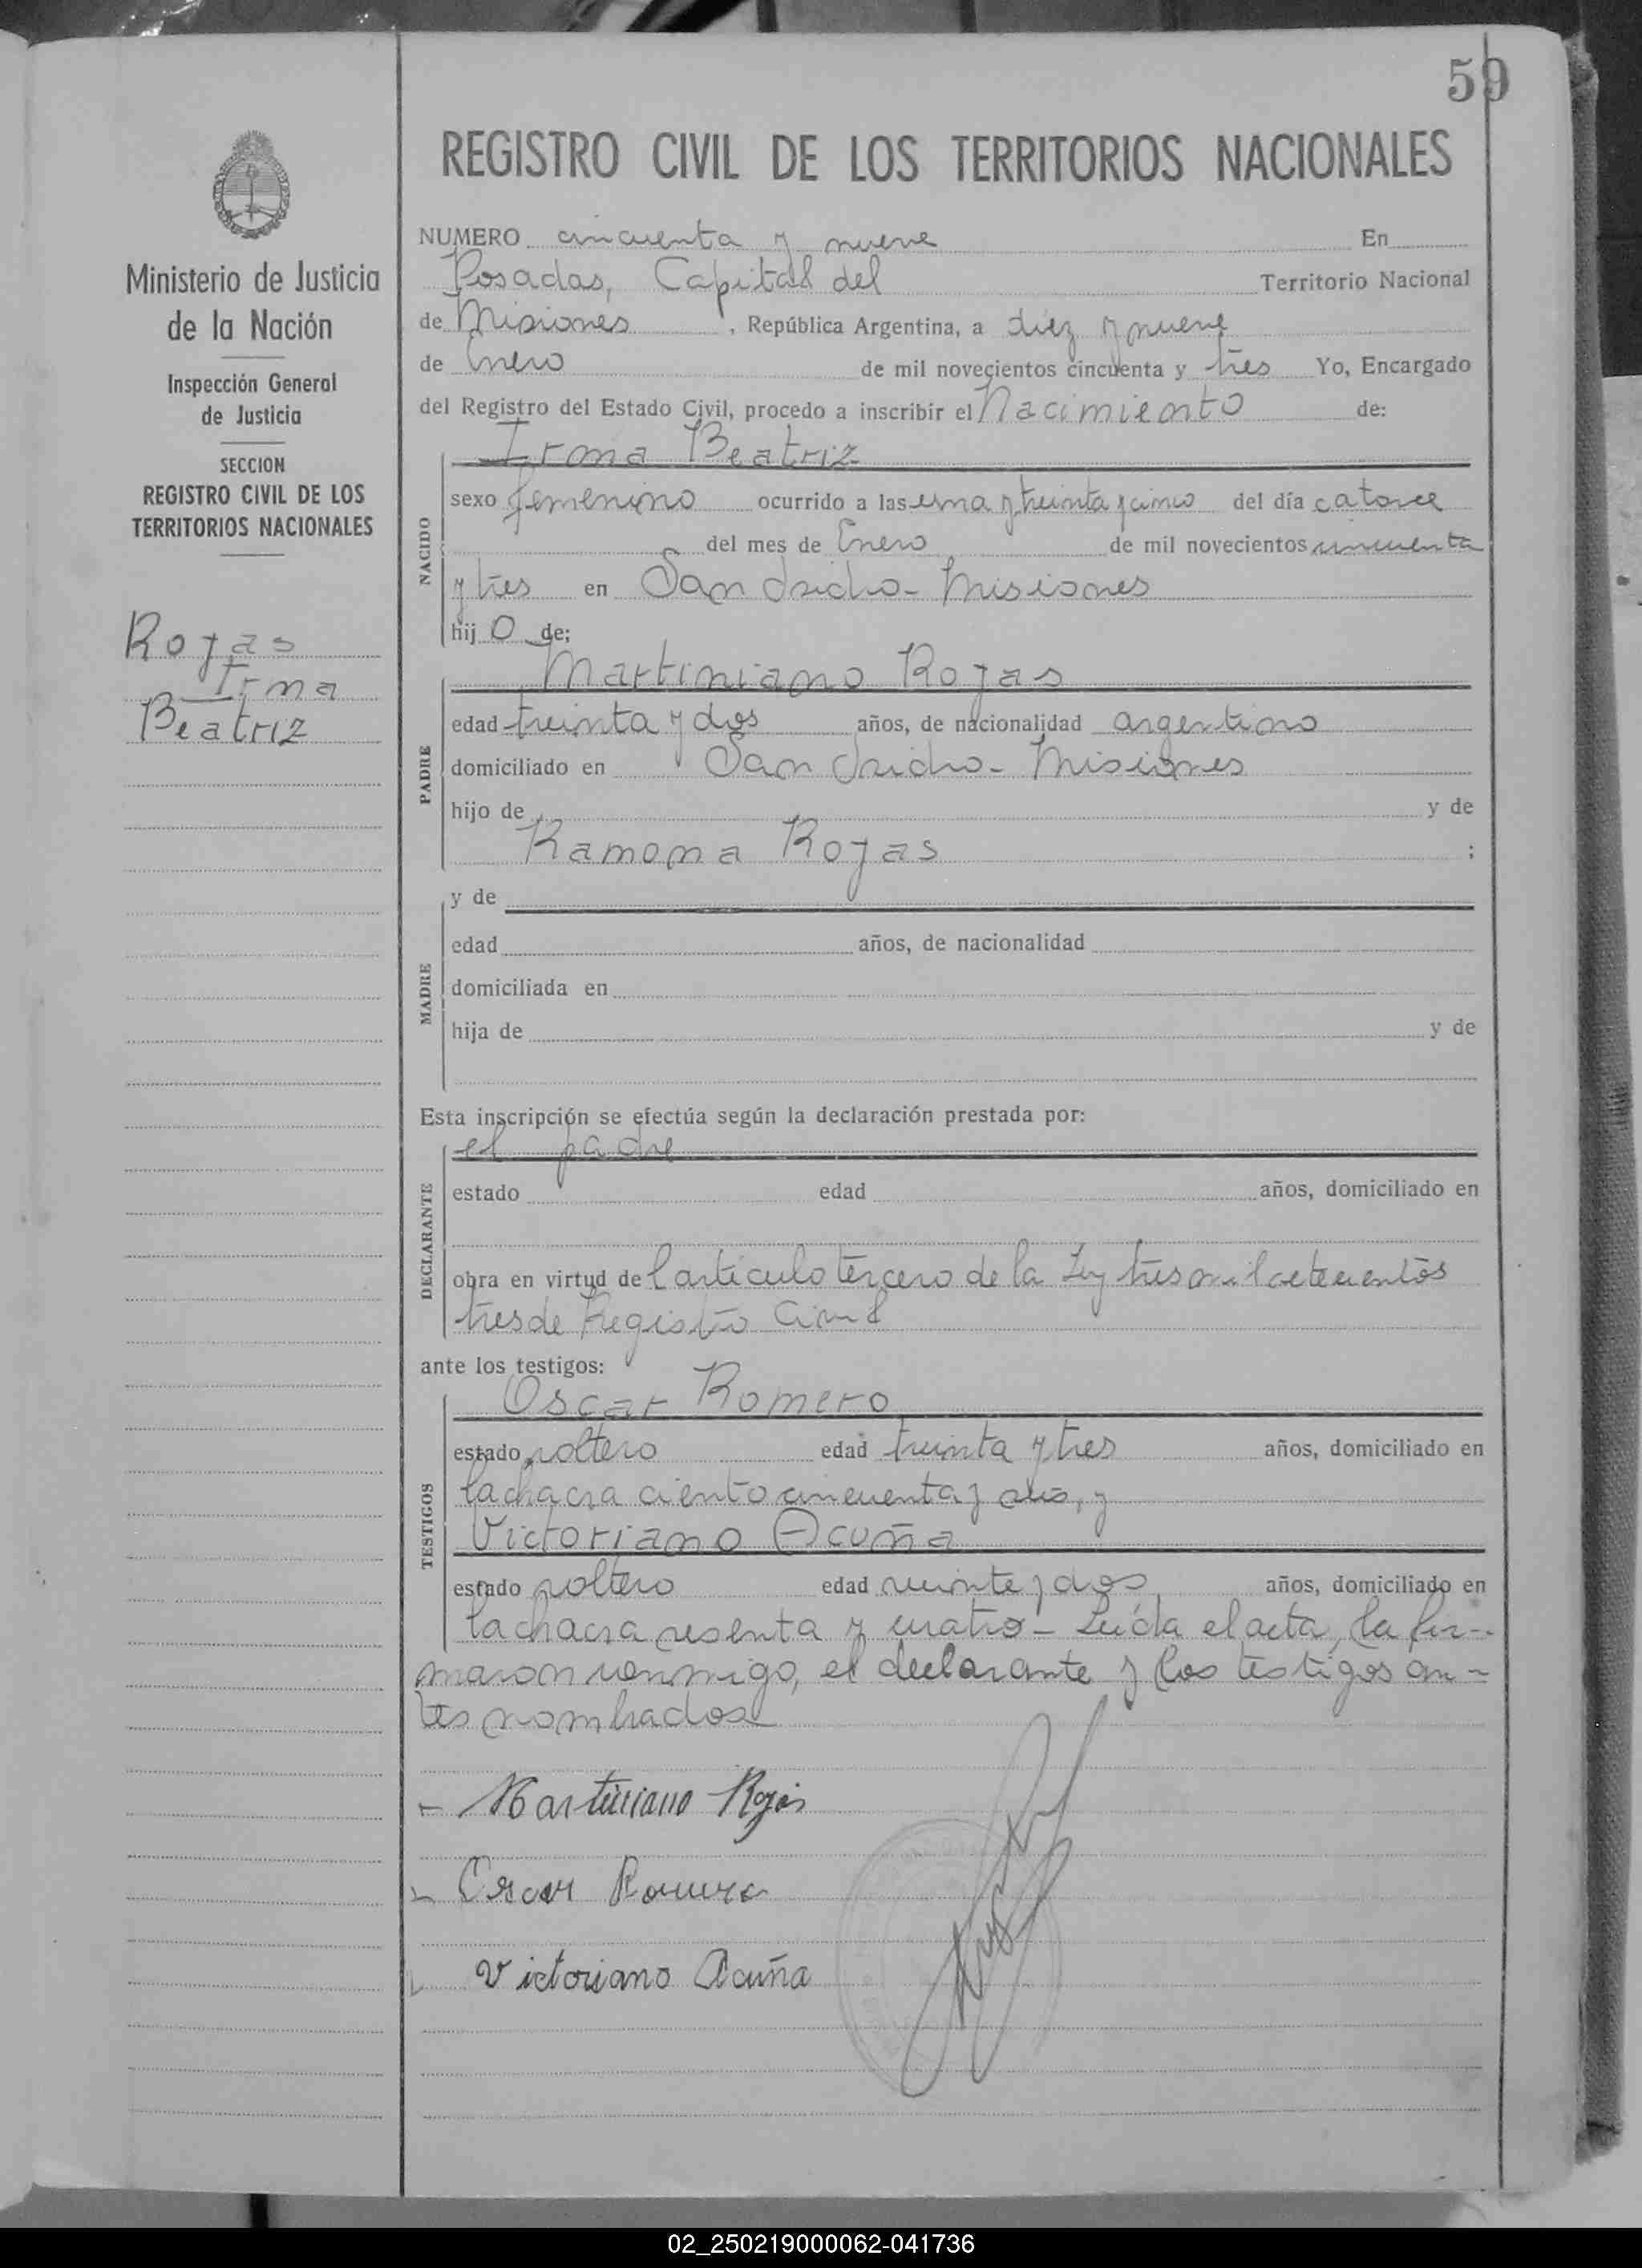 59
REGISTRO CIVIL DE LOS TERRITORIOS NACIONALES
Ministerio de Justicia
de la Nación
Inspección General
de Justicia
SECCION
REGISTRO CIVIL DE LOS
TERRITORIOS NACIONALES
Rojas
Irma
Beatriz
NUMERO cincuenta y nueve En
Posadas, Capital del Territorio Nacional
de Misiones, República Argentina, a diez y nueve
de Enero de mil novecientos cincuenta y tres Yo, Encargado
del Registro del Estado Civil, procedo a inscribir el Nacimiento de:
NACIDO
Irma Beatriz
sexo femenino ocurrido a las una y treinta y cinco del día catorce
del mes de Enero de mil novecientos cincuenta
y tres en San Isidro - Misiones
hij o de;
PADRE
Martiniano Rojas
edad treinta y dos años, de nacionalidad argentino
domiciliado en San Isidro - Misiones
hijo de y de
Ramona Rojas ;
MADRE
y de
edad años, de nacionalidad
domiciliada en
hija de y de
Esta inscripción se efectúa según la declaración prestada por:
DECLARANTE
el padre
estado edad años, domiciliado en
obra en virtud de l artículo tercero de la Ley tres mil setecientos
tres de Registro Civil
ante los testigos:
TESTIGOS
Oscar Romero
estado soltero edad treinta y tres años, domiciliado en
la chacra ciento cincuenta y seis, y
Victoriano Acuña
estado soltero edad veinte y dos años, domiciliado en
la chacra sesenta y cuatro - Leída el acta, la fir-
maron conmigo, el declarante y los testigos an-
tes nombrados
Martiniano Rojas
Oscar Romero
Victoriano Acuña
02_250219000062-041736